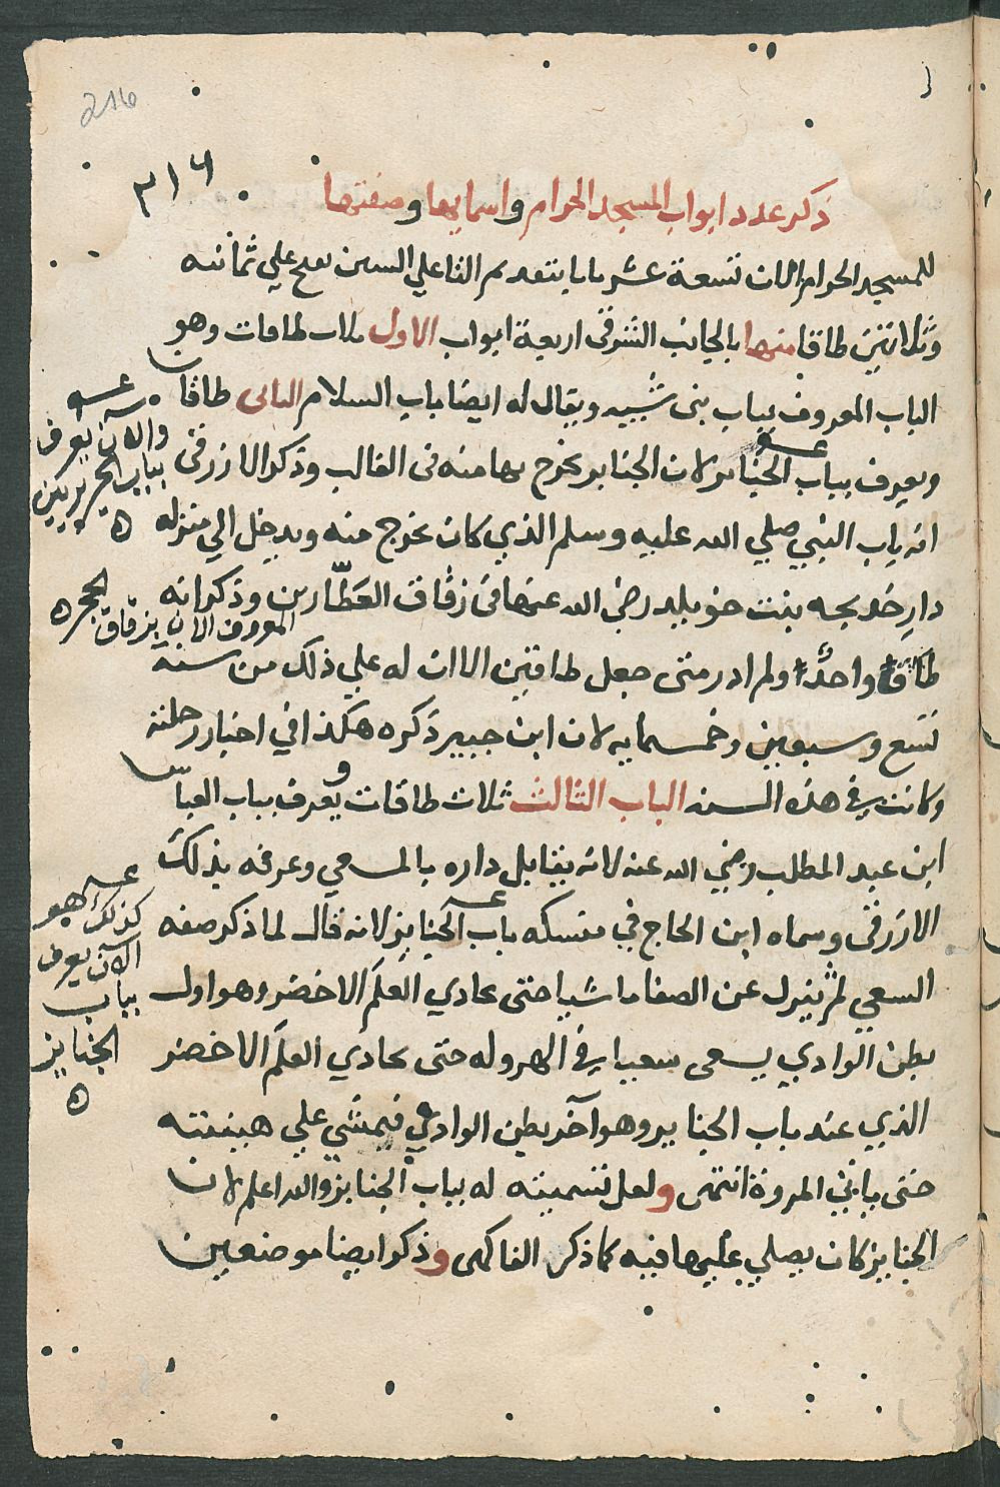 ٣١٦
ذكر عدد ابواب المسجد الحرام واسمايها وصفتها
للمسجد الحرام الان تسعة عشر بابا بتقديم التا علي السين تفتح علي ثمانية
وثلاثين طاقا منها بالجانب الشرقى اربعة ابواب الاول ثلاث طاقات وهو
الباب المعروف بباب بنى شيبه ويقال له ايضا باب السلام الثانى طاقان
ويعرف بباب الجنايز لان الجنايز تخرج بها منه فى الغالب وذكر الازرقى
انه باب النبي صلي الله عليه وسلم الذي كان يخرج منه ويدخل الي منزله
دار خديجه بنت خويلد رضي الله عنها فى زقاق العطّارين وذكر انه
طاقا واحدا ولم ادر متى جعل طاقين الا ان له علي ذلك من سنة
تسع وسبعين وخمسمايه لان ابن جبير ذكره هكذا في اخبار رحلته
وكانت في هذه السنه الباب الثالث ثلاث طاقات ويعرف بباب العباس
ابن عبد المطلب رضي الله عنه لانه يقابل داره بالمسعي وعرفه بذلك
الازرقى وسماه ابن الحاج في منسكه باب الجنايز لانه قال لما ذكر صفه
السعي ثم ينزل عن الصفا ماشيا حتى يحادي العلم الاخضر وهو اول
بطن الوادي يسعى سعيا في الهروله حتى يحادي العلم الاخضر
الذي عند باب الجنايز وهو آخر بطن الوادي فيمشي علي هينته
حتى ياتي المروة انتهى ولعل تسميته له بباب الجنايز والله اعلم لان
الجنايز كان يصلي عليها فيه كما ذكر الفاكهى وذكر ايضا موضعين
والآن يعرف
بباب الحريريين
المعروف الان بزقاق الحجر
كذلك هو
الآن يعرف
بباب
الجنايز